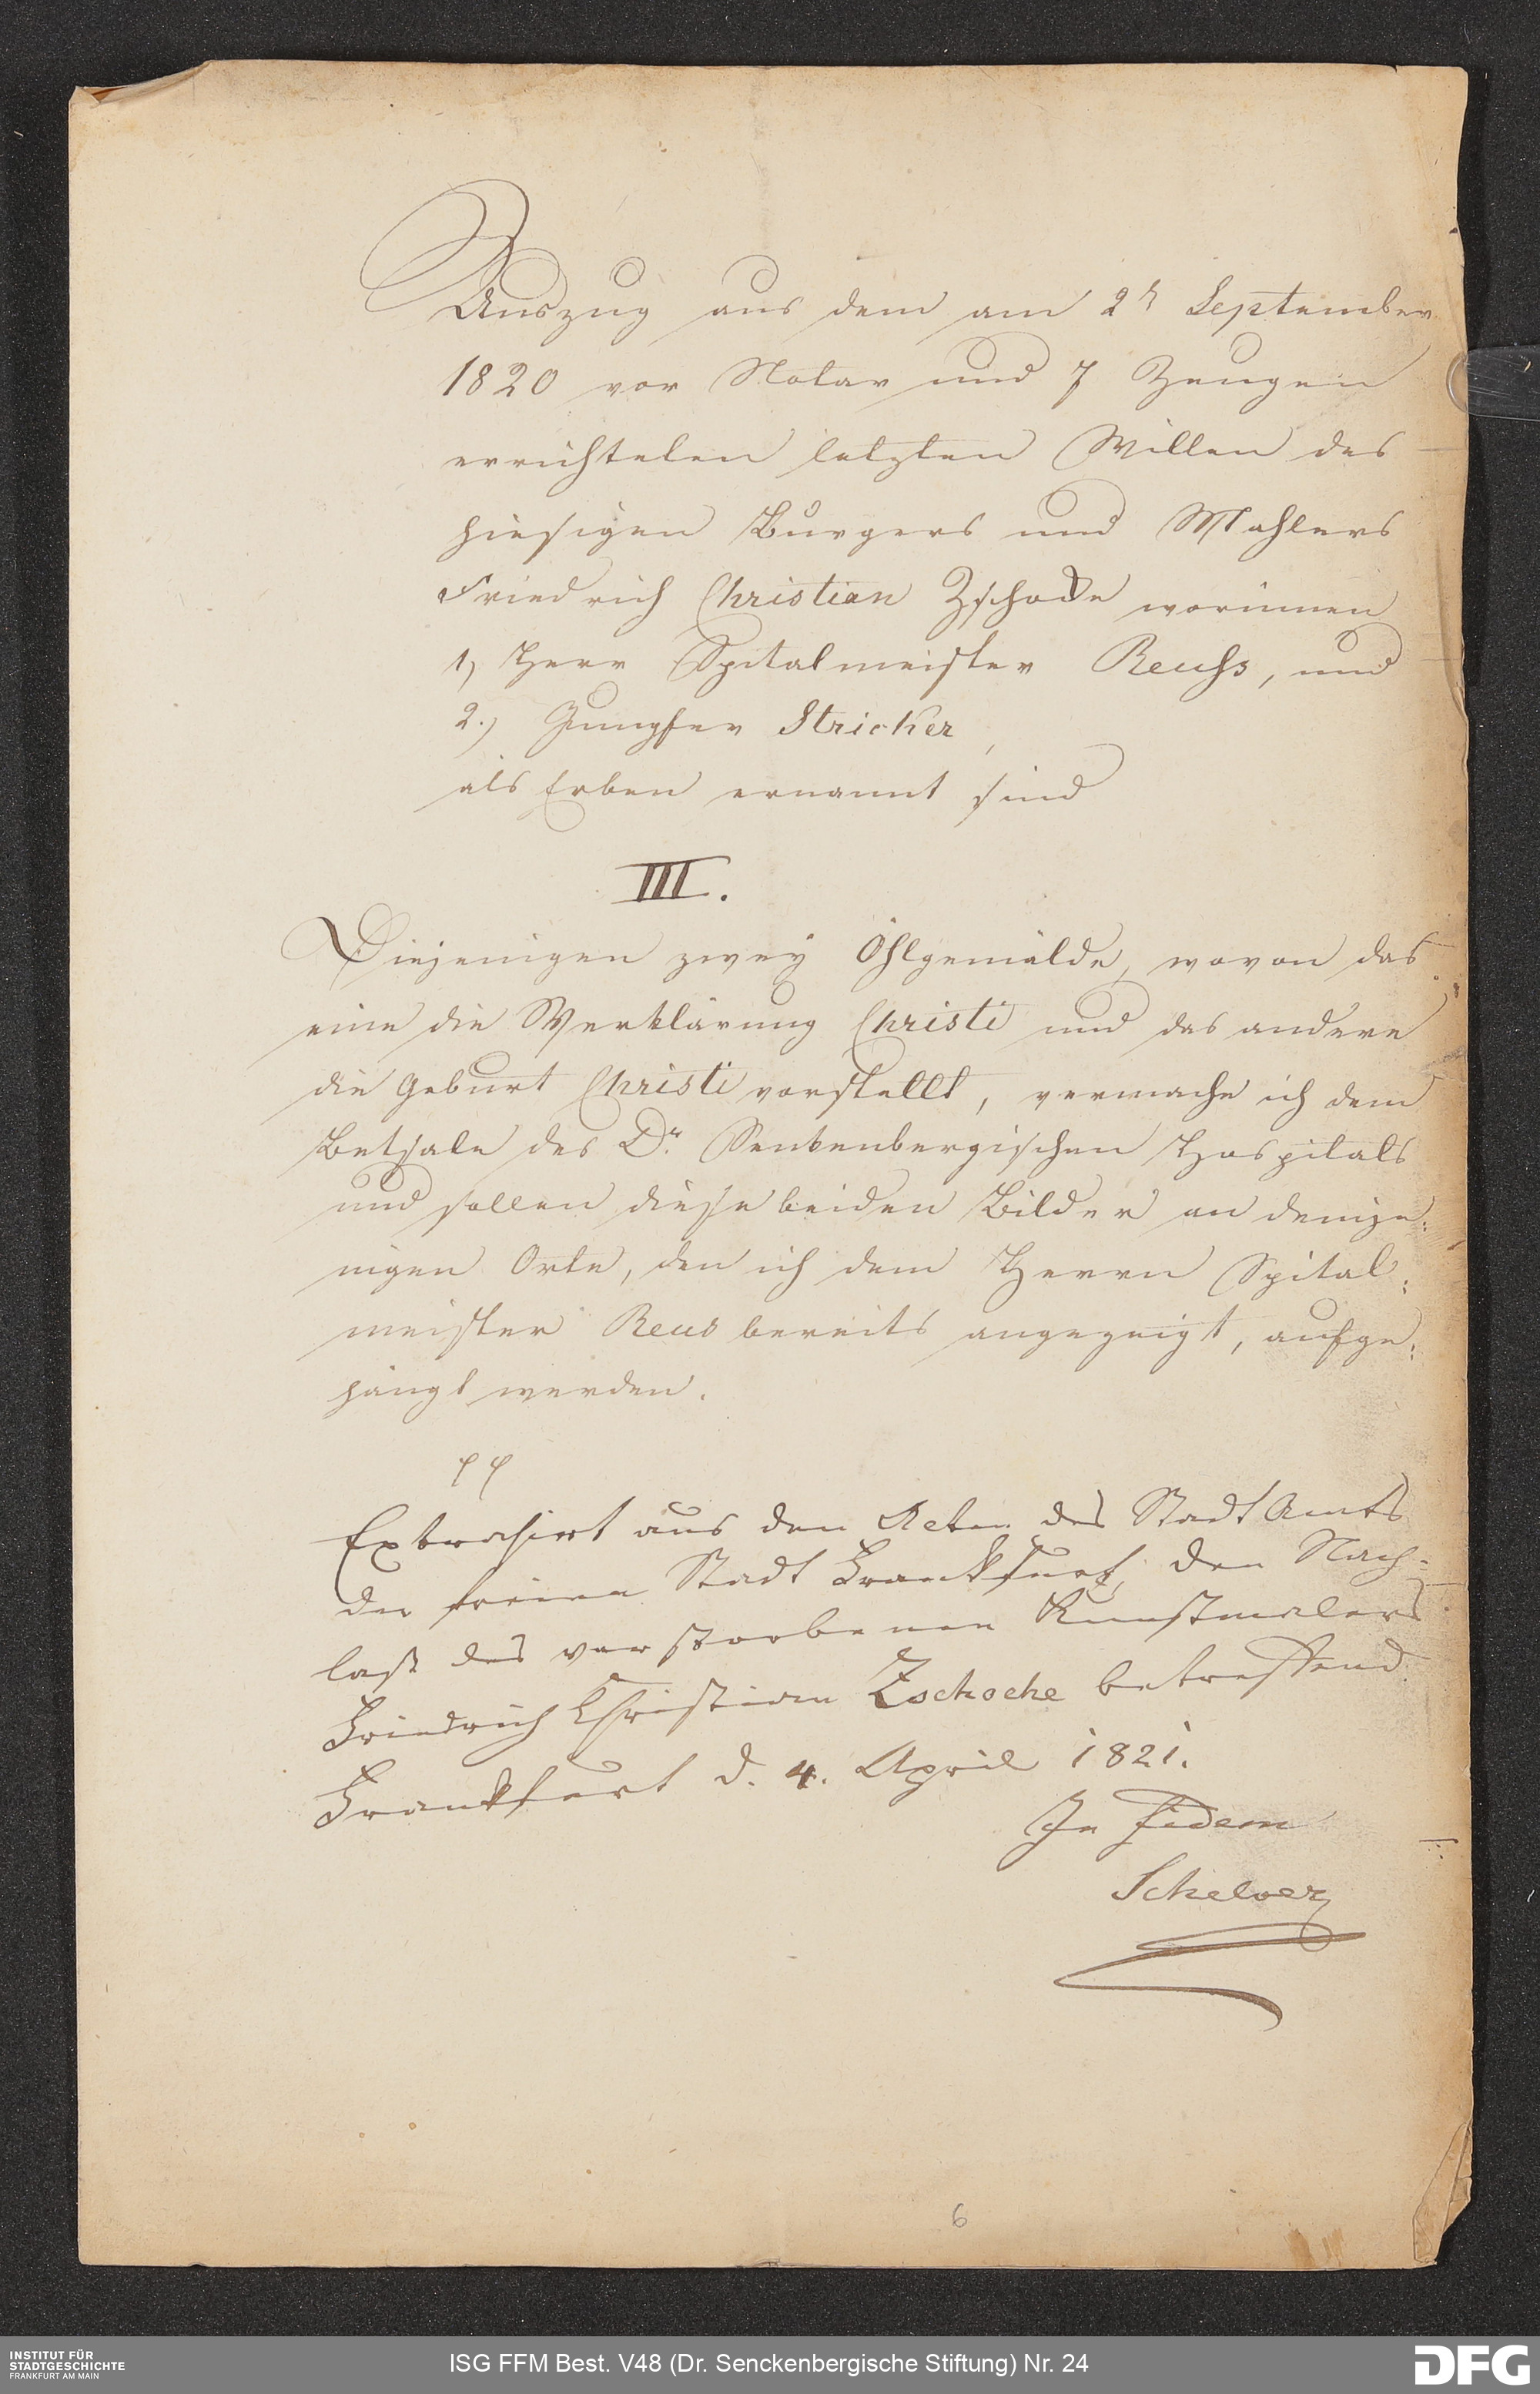 Auszug aus dem am 2n September
1820 vor Notar und 7 Zeugen
errichteten letzten Willen des
hiesigen Burgers und Mahlers
Friedrich Christian Zschoche worinnen
1, Herr Spitalmeister Reuss, und
2., Jungfer Stricker,
als Erben ernannt sind
III.
Diejenigen zwey Öhlgemälde, wovon das
eine die Verklärung Christi und das andere
die Geburt Christi vorstellt, vermache ich dem
Betsale des Dr. Senkenbergischen Hospitals
und sollen diese beiden Bilder an demje:
nigen Orte, den ich dem Herrn Spital:
meister Reus bereits angezeigt, aufge:
hängt werden.
pp
Extrahirt aus den Acten des Stadt Amts
der freien Stadt Frankfurt, den Nach-
laß des verstorbenen Kunstmalers
Friedrich Christian Zschoche betreffend
Frankfurt d. 4. April 1821.
In fidem
Schelver
6
INSTITUT FÜR
STADTGESCHICHTE
FRANKFURT AM MAIN
ISG FFM Best. V48 (Dr. Senckenbergische Stiftung) Nr. 24
DFG